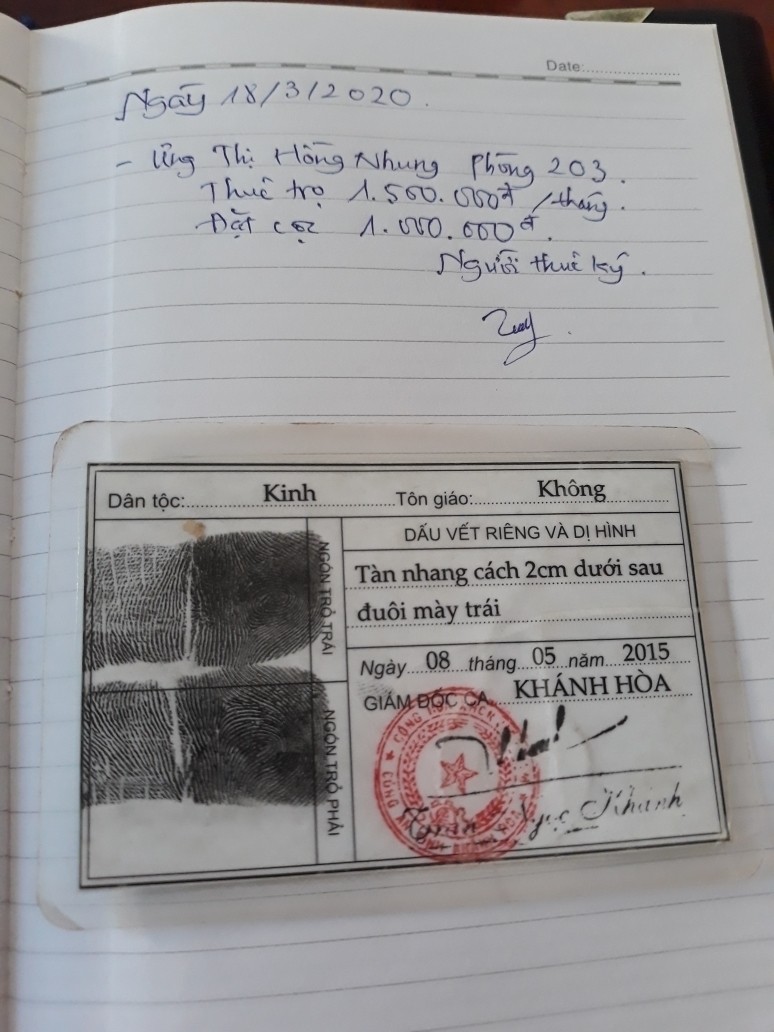 Date:
Ngày 18/3/2020.
- Ứng Thị Hồng Nhung Phòng 203.
Thuê trọ 1.500.000đ /tháng.
Đặt cọc 1.000.000đ.
Người thuê ký.
Dân tộc: Kinh Tôn giáo: Không
NGÓN TRỎ TRÁI
NGÓN TRỎ PHẢI
DẤU VẾT RIÊNG VÀ DỊ HÌNH
Tàn nhang cách 2cm dưới sau
đuôi mày trái
Ngày 08 tháng 05 năm 2015
GIÁM ĐỐC CA KHÁNH HÒA
Ngọc Khánh